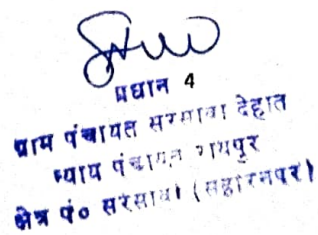 प्रधान 4
ग्राम पंचायत सरसावा देहात
न्याय पंचायत रायपुर
क्षेत्र पं० सरसावा (सहारनपुर)